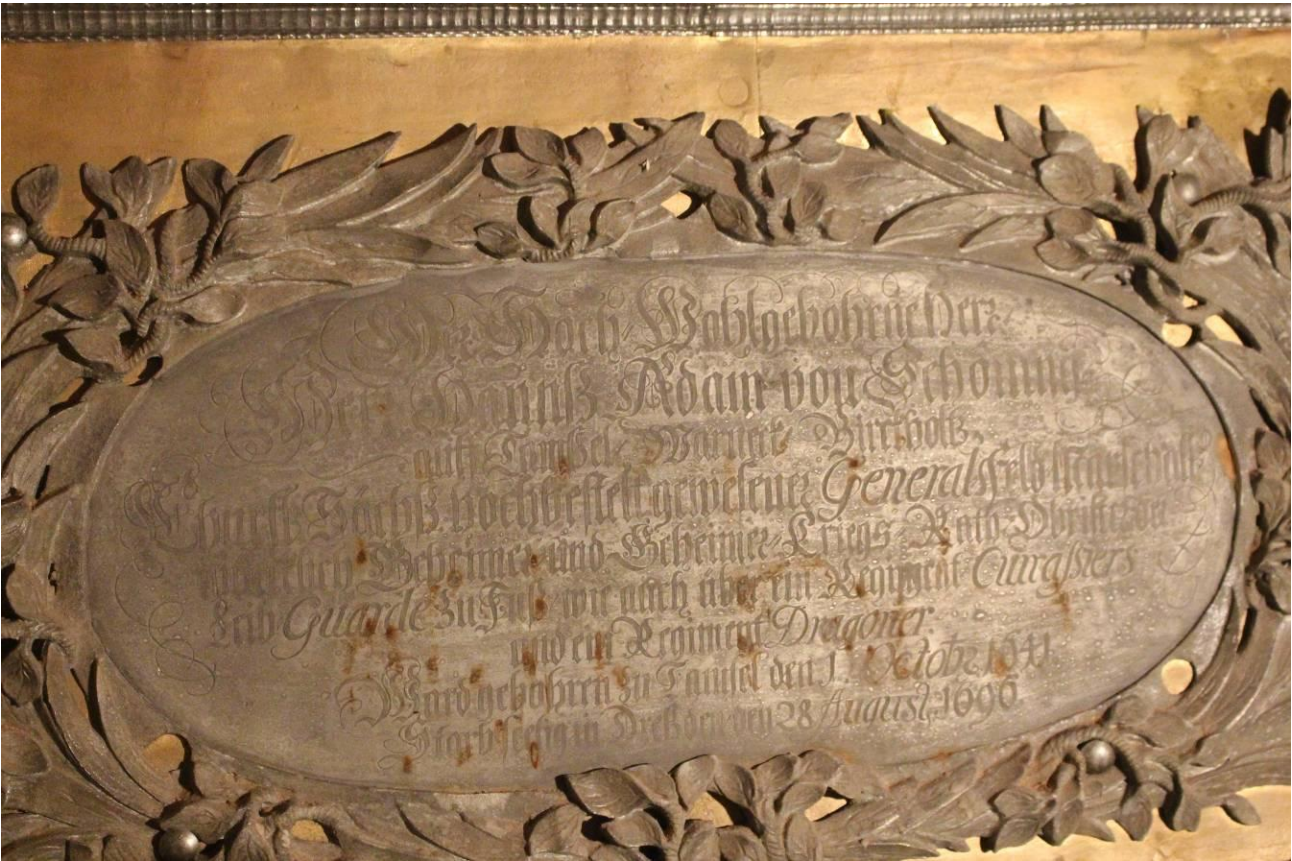 Der Hoch Wohlgebohrne Herr
Herr Hannß Adam von Schöning
auff Tamsel Warnick Birckholtz
Churfl. Sächß. hochbestelt gewesener Generalfeldmarschall
Geheimer und Geheimer Kriegs Rath Obrister der
Leib Guarde zu Fuß wie auch über ein Regiment Curassiers
und ein Regiment Dragoner
Ward gebohren zu Tamsel den 1. Octobr. 1641
Starb seelig in Dreßden den 28 August. 1696